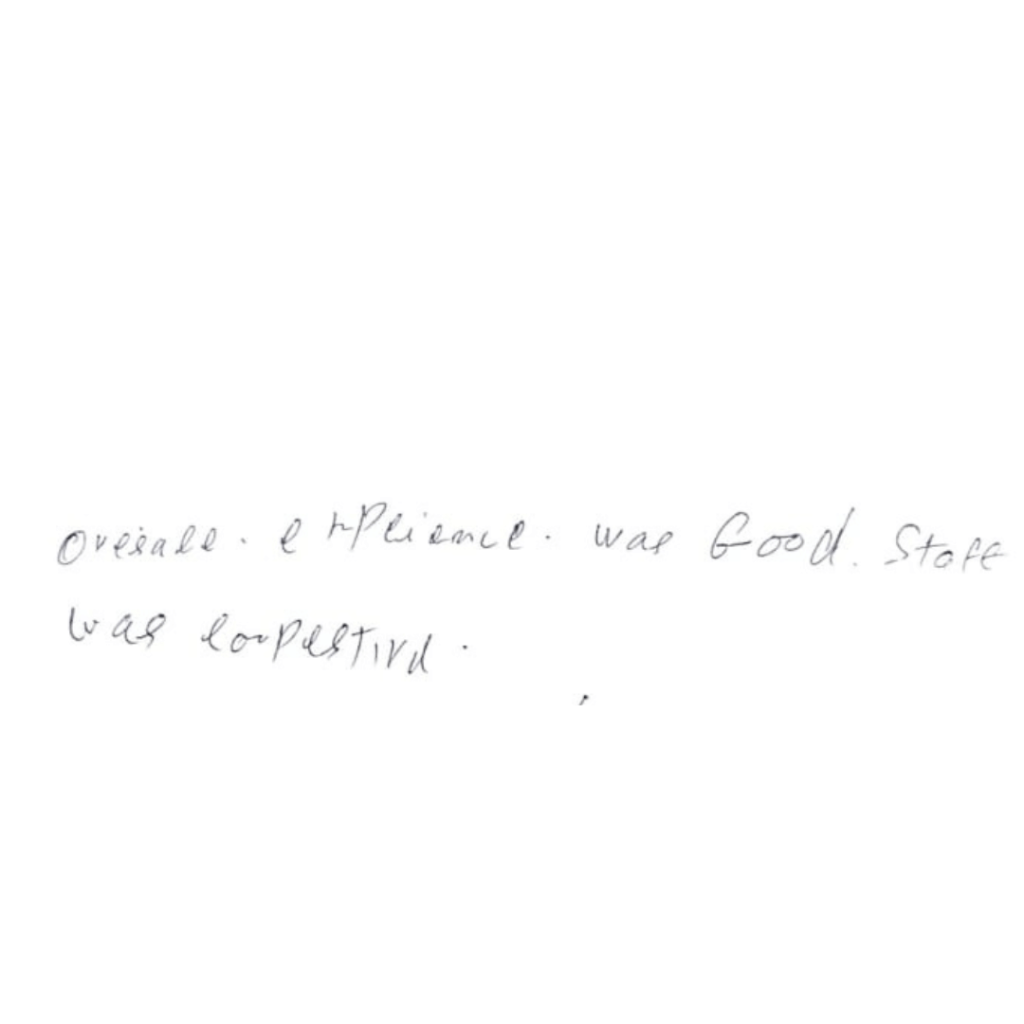 Overall. experience. was Good. Staff
was